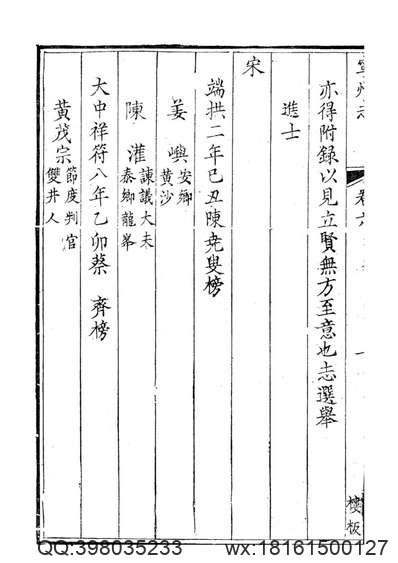 亦得附録以見立賢無方至意也志選舉
進士
宋
端拱二年己丑陳堯叟榜
姜嶼
安鄉
黄沙
陳灌
諫議大夫
泰鄉龍峯
大中祥符八年乙卯蔡齊榜
黃茂宗
節度判官
雙井人
QQ:398035233
wx:18161500127